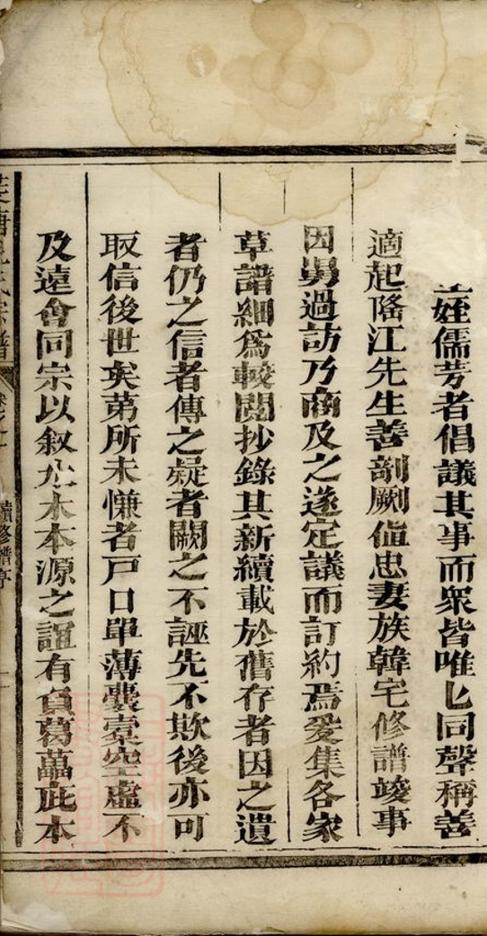 姪儒芳者倡議其事而衆皆唯匕同聲稱善
適起隲江先生善剞劂值忠妻族韓宅修譜竣事
因舅過訪乃商及之遂定議而訂約焉爰集各家
草譜細爲較閱抄錄其新續載於舊存者因之遺
者仍之信者傳之疑者闕之不誣先不欺後亦可
取信後世矣第所未慊者戸口單薄囊槖空虛不
及遠會同宗以叙水木本源之誼有負葛藟庇本
塘 氏宗譜
卷之 續修譜序